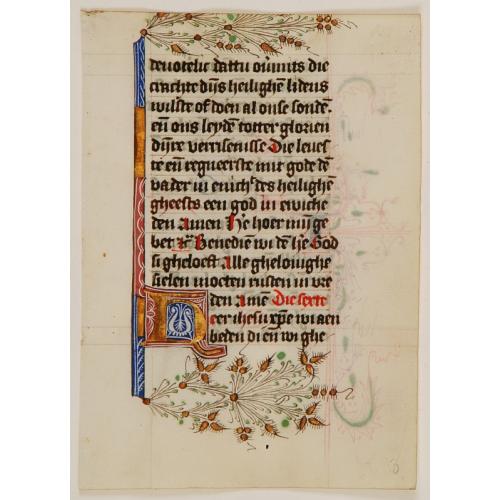 deuotelic dattu oūmits die
crachte dijns heilighē lidens
wilste of doen al onse sondē.
eñ ons leydē totter glorien
dijnre verrisenisse Die leues
te eñ regneerste mit gode dē
vader in enich⁹ des heilighē
gheests een god in ewiche
den Amen He hoer mijn ge
bet Benediē wi dē he God
si gheloeft Alle ghelouighe
sielen moeten rusten in vre
den Amē Die serte
eer ihesu xpē wi aen
beden di eñ wi ghe
8